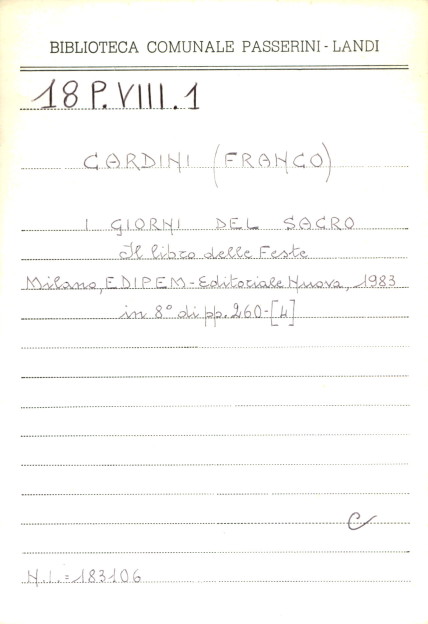 BIBLIOTECA COMUNALE PASSERINI - LANDI
18 P. VIII. 1
CARDINI (FRANCO)
I GIORNI DEL SACRO
Il libro delle Feste
Milano, EDIPEM - Editoriale Nuova, 1983
in 8° di pp. 260-[4]
C
N.I. = 183106